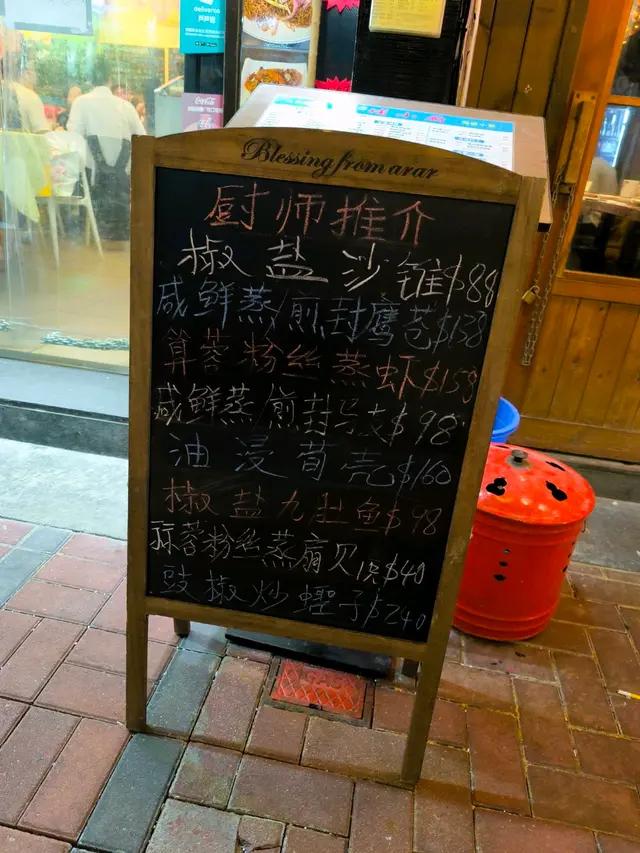 deliveroo
戶戶送
Coca-Cola
Blessing from arar
厨师推介
椒盐沙锥$88
咸鲜蒸/煎封鹰苍$138
算蓉粉丝蒸虾$158
咸鲜蒸/煎封马友$98
油浸荀壳$160
椒盐九肚鱼$98
蒜蓉粉丝蒸扇贝1只$40
豉椒炒蛏子$240